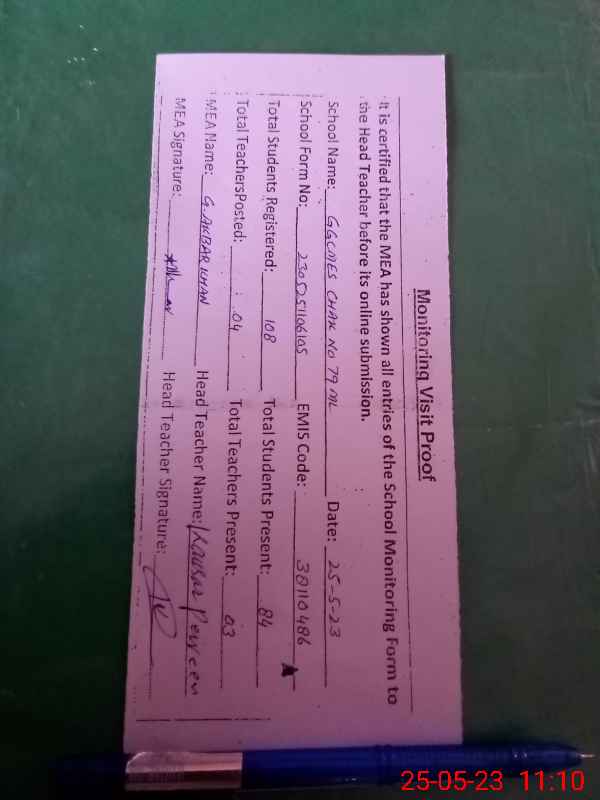 Monitoring Visit Proof
It is certified that the MEA has shown all entries of the School Monitoring Form to
the Head Teacher before its online submission.
School Name: GGCMES CHAK NO 79 ML Date: 25-5-23
School Form No: 2305251106105 EMIS Code: 38110486
Total Students Registered: 108 Total Students Present: 84
Total TeachersPosted: 04 Total Teachers Present: 03
MEA Name: G. AKBAR KHAN Head Teacher Name: Kausar Perveen
MEA Signature: Head Teacher Signature:
25-05-23 11:10